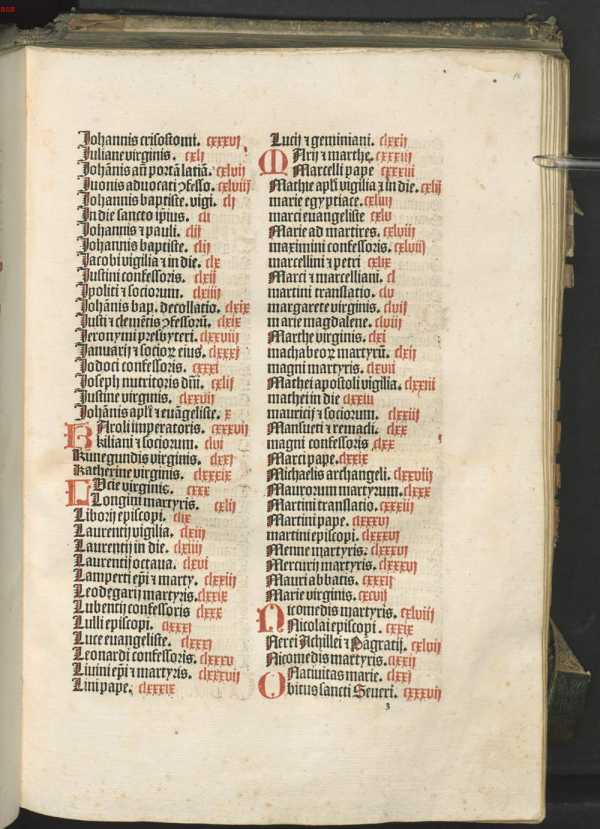 Johannis crisostomi. cxxxvj
Juliane virginis. cxlj
Johānis añ portā latiā. cxlvij
Juonis aduocati ꝯfesso. cxlviij
Johannis baptiste. vigi. clj
In die sancto ip̄ius. clj
Johannis ⁊ pauli. clij
Johannis baptiste. clij
Jacobi vigilia ⁊ in die. clx
Justini confessoris. clxij
Ipoliti ⁊ sociorum. clxiiij
Johānis bap. decollatio. clxix
Justi ⁊ clemētis ꝯfessorū. clxix
Jeronymi presbyteri. clxxviij
Januarij ⁊ socioꝝ eius. clxxxj
Jodoci confessoris. cxxxj
Joseph nutritoris dñi. cxlij
Justine virginis. clxxvij
Johānis apl̄i ⁊ euāgeliste. x
KAroli imperatoris. cxxxvij
kiliani ⁊ sociorum. clvj
Kunegundis virginis. clxxj
Katherine virginis. clxxxix
LUcie virginis. cxxx
Longini martyris. cxlij
Liborij episcopi. clix
Laurentij vigilia. clxiij
Laurentij in die. clxiiij
Laurentij octaua. clxvj
Lamperti ep̄i ⁊ marty. clxxiij
Leodegarij martyris. clxxix
Lubentij confessoris clxxx
Lulli episcopi. clxxxj
Luce euangeliste. clxxxj
Leonardi confessoris. clxxxv
Liuini ep̄i ⁊ martyris. clxxxvij
Lini pape. clxxxix
Lucij ⁊ geminiani. clxxij
MArij ⁊ marthe. cxxxiiij
Marcelli pape cxxxiij
Mathie apl̄i vigilia ⁊ in die. cxlij
marie egyptiace. cxlvij
marci euangeliste cxlv
Marie ad martires. cxlviij
maximini confessoris. cxlviij
marcellini ⁊ petri cxlix
Marci ⁊ marcelliani. cl
martini translatio. clv
margarete virginis. clvij
marie magdalene. clviij
Marthe virginis. clxj
machabeoꝝ martyrū. clxij
magni martyris. clxvij
Mathei apostoli vigilia. clxxiij
mathei in die clxxiij
mauricij ⁊ sociorum. clxxiij
Mansueti ⁊ remacli. clxx
magni confessoris clxx
Marci pape. clxxix
Michaelis archangeli. clxxviij
Maurorum martyrum. clxxx
Martini translatio. cxxxiij
Martini pape. clxxxvj
martini episcopi. clxxxvj
Menne martyris. clxxxvj
Mercurij martyris. clxxxvj
Mauri abbatis. cxxxij
Marie virginis. cxcvij
NIcomedis martyris. cxlviij
Nicolai episcopi. cxxix
Nerei Achillei ⁊ Pāgratij. cxlvij
Nicomedis martyris. clxxij
Natiuitas marie. clxxj
Obitus sancti Seueri. cxxxvij
3